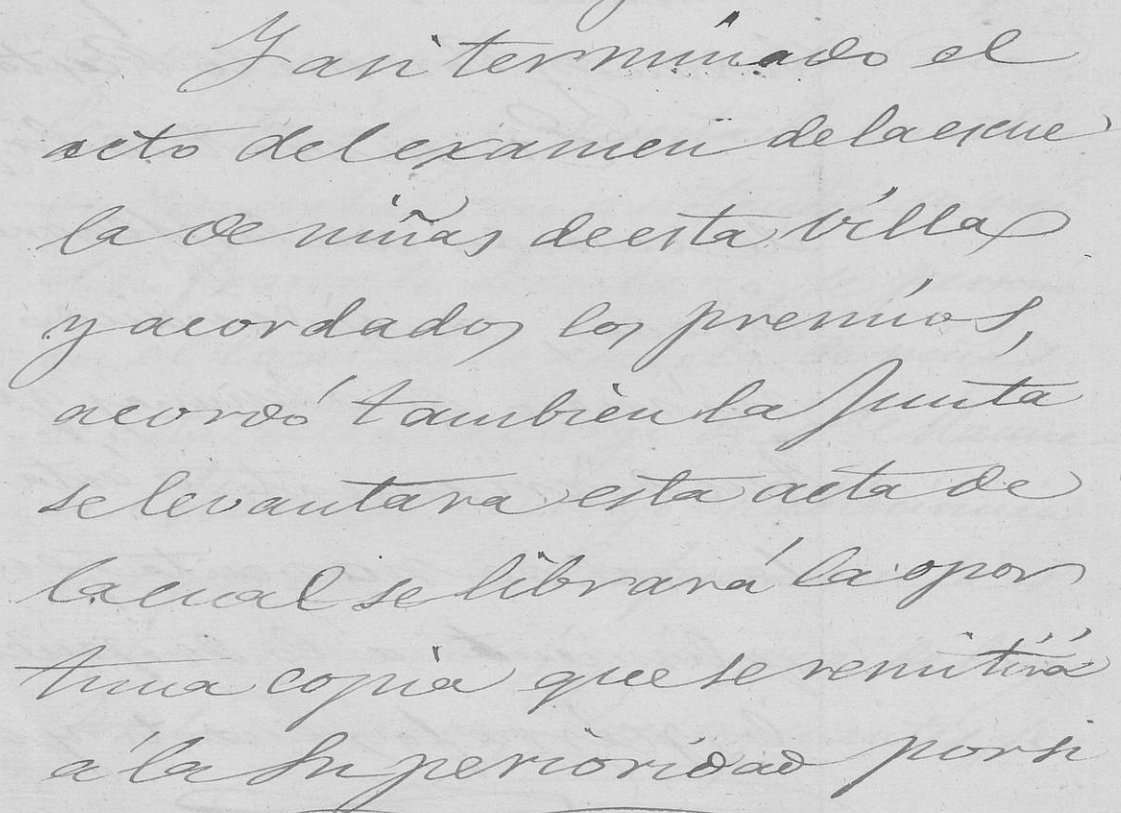 Y asi terminado el
acto del examen de la escue
la de niñas de esta villa
y acordados los premios,
acordó tambien la Junta
se levantara esta acta de
la cual se librará la opor
tuna copia que se remitirá
á la Superioridad por si